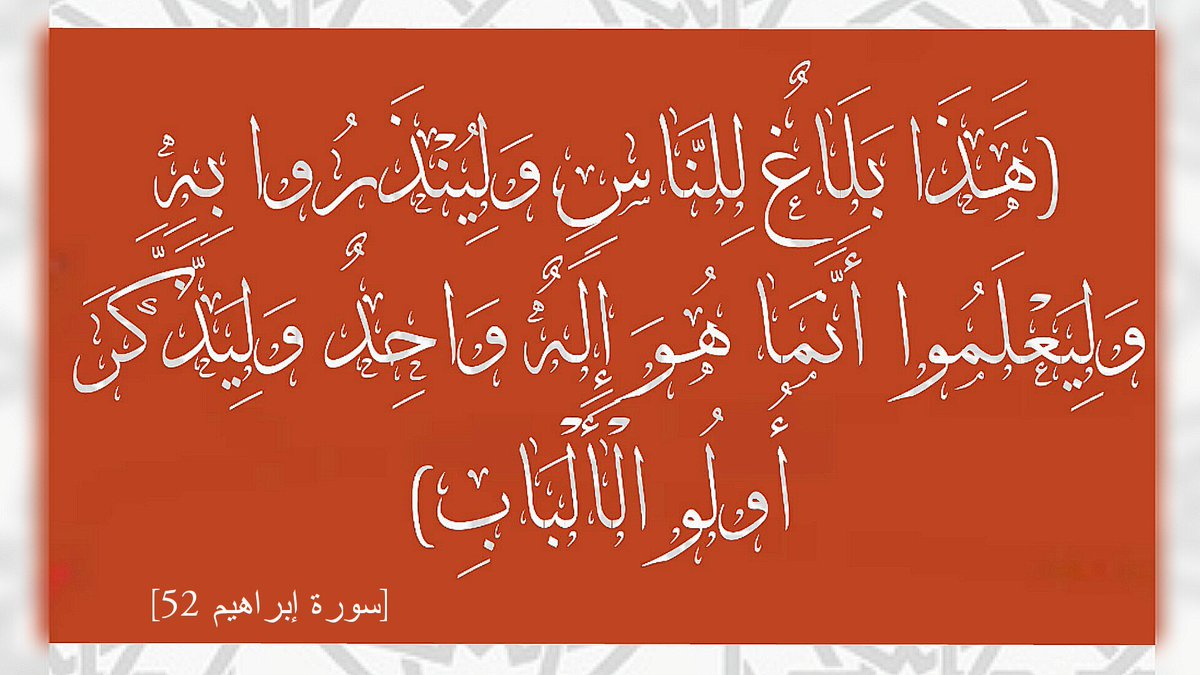 (هَٰذَا بَلَاغٌ لِلنَّاسِ وَلِيُنْذَرُوا بِهِ
وَلِيَعْلَمُوا أَنَّمَا هُوَ إِلَٰهٌ وَاحِدٌ وَلِيَذَّكَّرَ
أُولُو الْأَلْبَابِ)
[سورة إبراهيم 52]